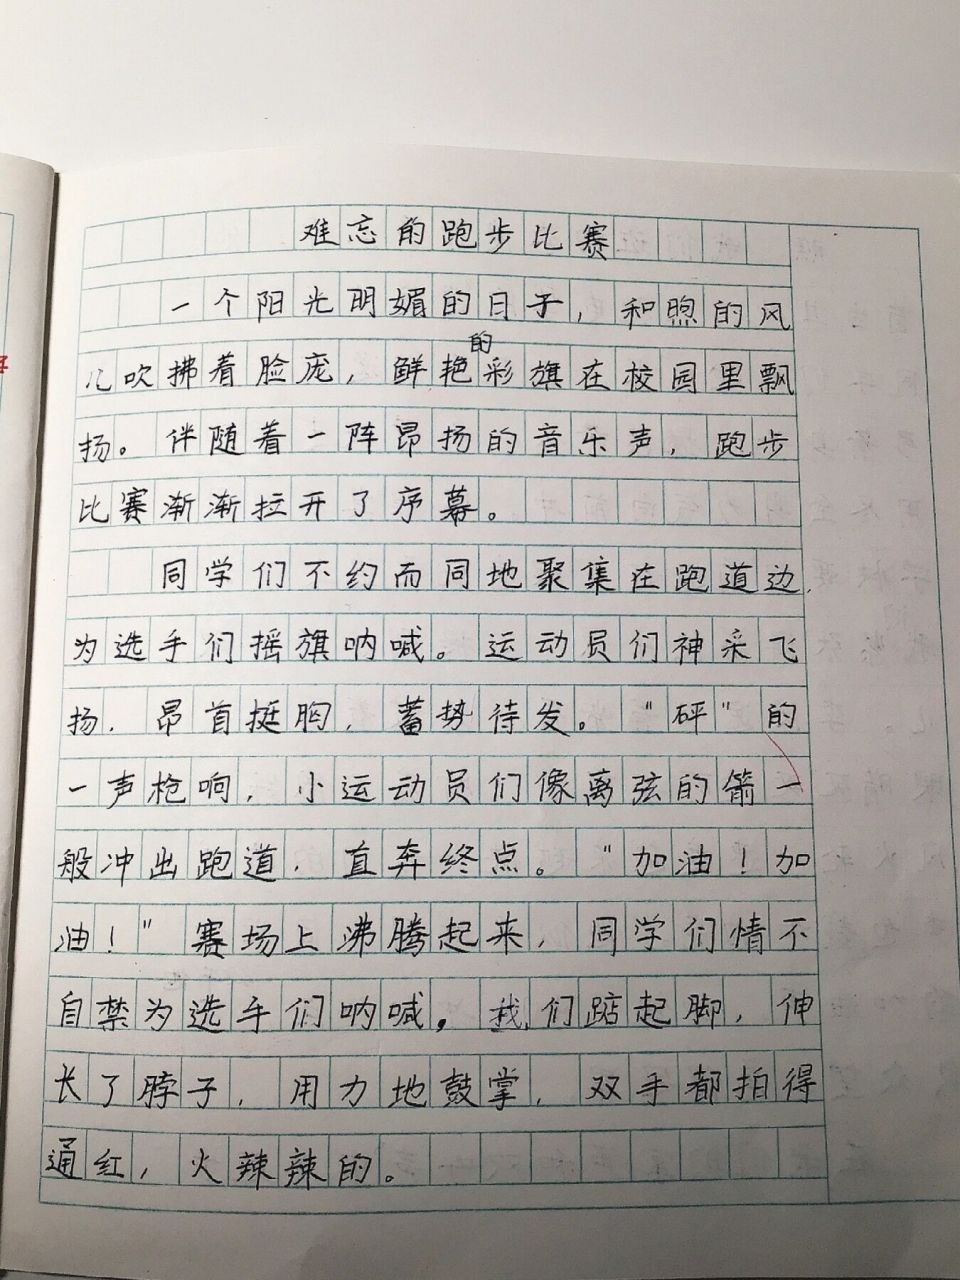 难忘的跑步比赛
一个阳光明媚的日子，和煦的风
儿吹拂着脸庞，鲜艳的彩旗在校园里飘
扬。伴随着一阵昂扬的音乐声，跑步
比赛渐渐拉开了序幕。
同学们不约而同地聚集在跑道边，
为选手们摇旗呐喊。运动员们神采飞
扬，昂首挺胸，蓄势待发。“砰”的
一声枪响，小运动员们像离弦的箭一
般冲出跑道，直奔终点。“加油！加
油！”赛场上沸腾起来，同学们情不
自禁为选手们呐喊，我们踮起脚，伸
长了脖子，用力地鼓掌，双手都拍得
通红，火辣辣的。